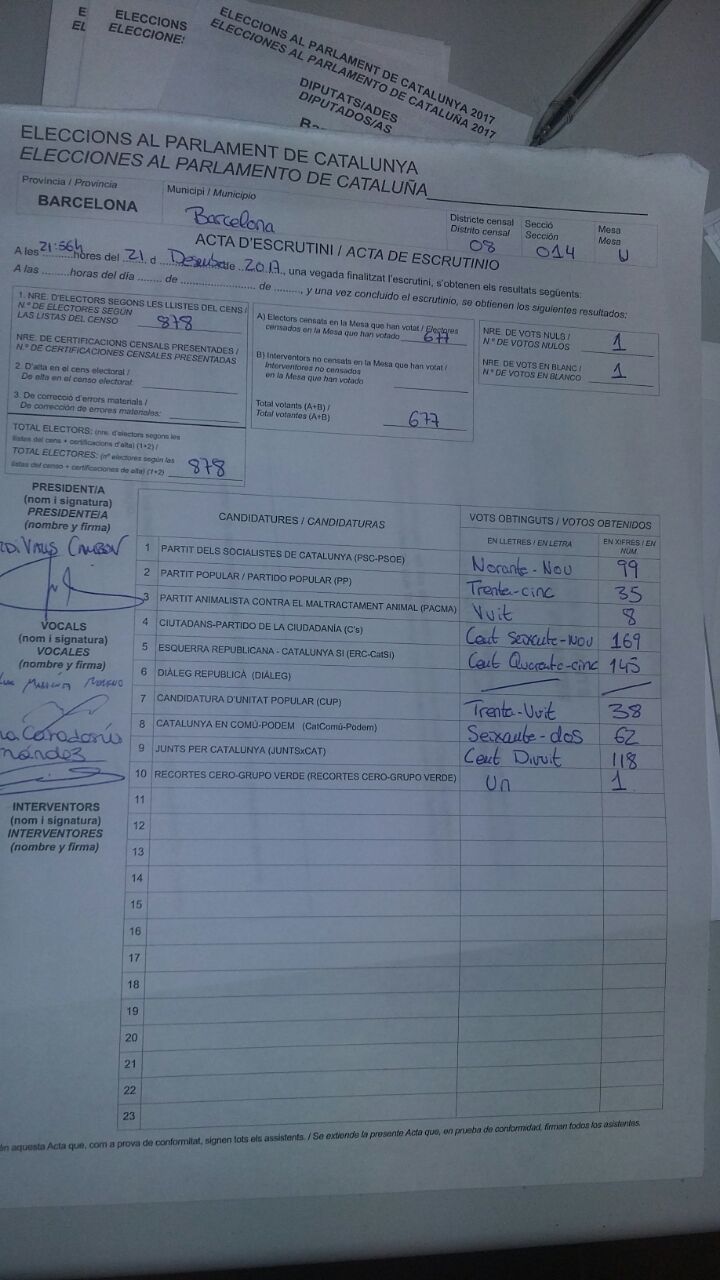 ELECCIONS
ELECCIONES
ELECCIONS AL PARLAMENT DE CATALUNYA 2017
ELECCIONES AL PARLAMENTO DE CATALUÑA 2017
DIPUTATS/ADES
DIPUTADOS/AS
ELECCIONS AL PARLAMENT DE CATALUNYA
ELECCIONES AL PARLAMENTO DE CATALUÑA
Província / Provincia
BARCELONA
Municipi / Municipio
Barcelona
Districte censal
Distrito censal
08
Secció
Sección
014
Mesa
Mesa
U
ACTA D'ESCRUTINI / ACTA DE ESCRUTINIO
A les 21:56h hores del 21 d Desembre de 2017, una vegada finalitzat l'escrutini, s'obtenen els resultats següents:
A las .........horas del día ........ de ........................... de ........., y una vez concluido el escrutinio, se obtienen los siguientes resultados:
1. NRE. D'ELECTORS SEGONS LES LLISTES DEL CENS /
N.º DE ELECTORES SEGÚN
LAS LISTAS DEL CENSO 878
NRE. DE CERTIFICACIONS CENSALS PRESENTADES /
N.º DE CERTIFICACIONES CENSALES PRESENTADAS
2. D'alta en el cens electoral /
De alta en el censo electoral:
3. De correcció d'errors materials /
De corrección de errores materiales:
TOTAL ELECTORS: (nre. d'electors segons les
llistes del cens + certificacions d'alta) (1+2) /
TOTAL ELECTORES: (nº electores según las
listas del censo + certificaciones de alta) (1+2) 878
A) Electors censats en la Mesa que han votat / Electores
censados en la Mesa que han votado 677
B) Interventors no censats en la Mesa que han votat /
Interventores no censados
en la Mesa que han votado
Total votants (A+B) /
Total votantes (A+B) 677
NRE. DE VOTS NULS /
N.º DE VOTOS NULOS 1
NRE. DE VOTS EN BLANC /
N.º DE VOTOS EN BLANCO 1
PRESIDENT/A
(nom i signatura)
PRESIDENTE/A
(nombre y firma)
VOCALS
(nom i signatura)
VOCALES
(nombre y firma)
INTERVENTORS
(nom i signatura)
INTERVENTORES
(nombre y firma)
CANDIDATURES / CANDIDATURAS
VOTS OBTINGUTS / VOTOS OBTENIDOS
EN LLETRES / EN LETRA
EN XIFRES / EN NÚM.
1 PARTIT DELS SOCIALISTES DE CATALUNYA (PSC-PSOE) Norante-Nou 99
2 PARTIT POPULAR / PARTIDO POPULAR (PP) Trenta-cinc 35
3 PARTIT ANIMALISTA CONTRA EL MALTRACTAMENT ANIMAL (PACMA) Vuit 8
4 CIUTADANS-PARTIDO DE LA CIUDADANÍA (C's) Cent Seixante-Nou 169
5 ESQUERRA REPUBLICANA - CATALUNYA SI (ERC-CatSí) Cent Quaranta-cinc 145
6 DIÀLEG REPUBLICÀ (DIÀLEG)
7 CANDIDATURA D'UNITAT POPULAR (CUP) Trenta-Vuit 38
8 CATALUNYA EN COMÚ-PODEM (CatComú-Podem) Seixante-dos 62
9 JUNTS PER CATALUNYA (JUNTSxCAT) Cent Divuit 118
10 RECORTES CERO-GRUPO VERDE (RECORTES CERO-GRUPO VERDE) Un 1
11
12
13
14
15
16
17
18
19
20
21
22
23
aquesta Acta que, com a prova de conformitat, signen tots els assistents. / Se extiende la presente Acta que, en prueba de conformidad, firman todos los asistentes.